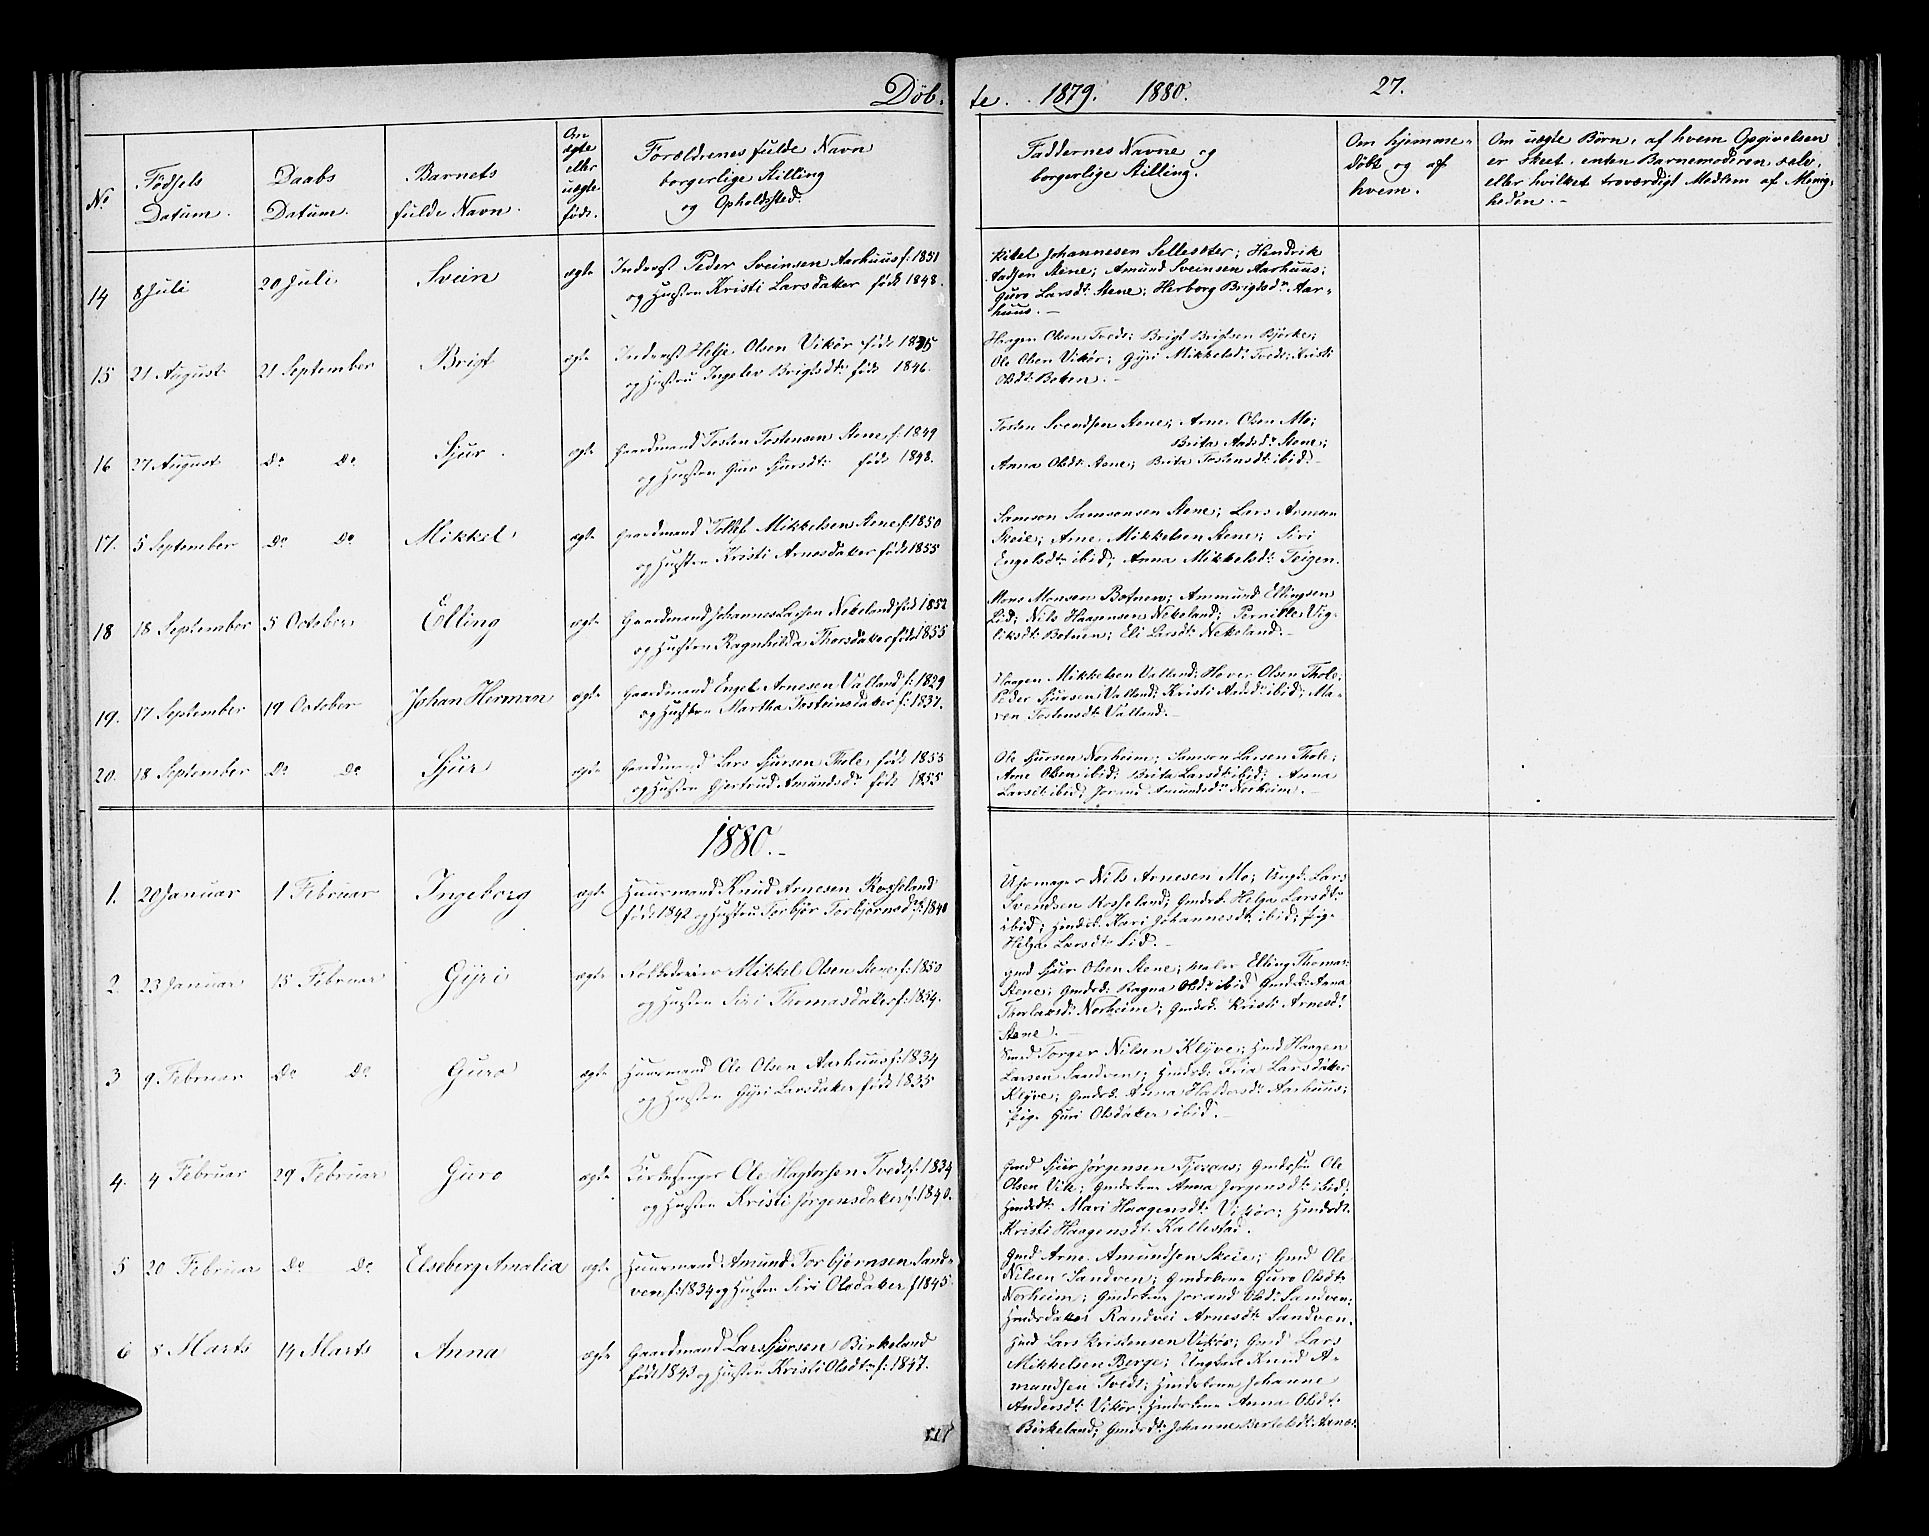 Døb-
te. 1879. 1880. 27.
No
Fødsels
Datum.
Daabs
Datum.
Barnets
fulde Navn.
Om
ægte
eller
uægte
født.
Forældrenes fulde Navn
borgerlige Stilling
og Opholdssted.
Faddernes Navne og
borgerlige Stilling.
Om hjemme-
døbt og af
hvem.
Om uægte Børn, af hvem Opgivelsen
er skeet, enten Barnemoderen selv,
eller hvilket troværdigt Medlem af Menig-
heden.
14 8 Juli 20 Juli Svein ægte Inderst Peder Sveinsen Aarhuus f: 1851
og Hustru Kristi Larsdatter født 1848.
Kitel Johannesen Selleseter; Hendrik
Aadsen Stene; Amund Sveinsen Aarhuus;
Guro Larsdt: Stene; Herborg Brigtsdr Aar-
huus.
15 21 August 21 September Brigt ægte Inderst Helje Olsen Vikør født 1835
og Hustru Ingelev Brigtsdt: født 1846.
Haagen Olsen Tvedt; Brigt Brigtsen Bjørke;
Ole Olsen Vikør; Gyri Mikkelsdt: Tvedt; Kristi
Olsdt: Botnen.
16 27 August Do Do Sjur ægte Gaardmand Tosten Tostensen Stene f: 1849
og Hustru Guro Sjursdt: født 1848.
Tosten Svendsen Stene; Arne Olsen Mo;
Brita Aadsdr Stene;
Anna Olsdt: Stene; Brita Tostensdt: ibid.
17. 5 September Do Do Mikkel ægte Gaardmand Tollef Mikkelsen Stene f: 1850
og Hustru Kristi Arnesdatter født 1855
Samson Samsonsen Stene; Lars Arnesen
Skeie; Arne Mikkelsen Stene; Siri
Engelsdt: ibid; Anna Mikkelsdt: Teigen.
18 18 September 5 October Elling ægte Gaardmand Johannes Larsen Nekeland født 1852
og Hustru Ragnhilda Thorsdatter født 1855
Mons Monsen Botnen; Ammund Ellingsen
Lid; Nils Haagensen Nekeland; Pernille Vig-
liksdt: Botnen; Eli Larsdt: Nekeland.
19. 17 September 19 October Johan Herman ægte Gaardmand Engel Arnesen Valland f: 1829
og Hustru Martha Josteinsdatter f: 1837.
Haagen Mikkelsen Valland; Haver Olsen Thole;
Peder Sjursen Valland; Kristi Aadsdr ibid; Ma-
ren Tostensdt: Valland.
20. 18 September Do Do Sjur ægte Gardmand Lars Sjursen Thole født 1855
og Hustru Gjertrud Amundsdr født 1855
Ole Sjursen Norheim; Samson Larsen Thole;
Arne Olsen ibid; Brita Larsdt: ibid; Anna
Larsdt: ibid; Jorand Amundsdr Norheim.
1880.
1. 20 Januar 1 Februar Ingeborg ægte Huusmand Knud Arnesen Rosseland
født 1842 og Hustru Torbjør Torbjørnsdr f: 1840
Uhrmager Nils Arnesen Mo; Ungk. Lars
Svendsen Rosseland; Gmdsd. Helga Larsdt:
ibid; Hmdsd. Kari Johannesdt: ibid; Pige
Helga Larsdt: Lid.
2. 23 Januar 15 Februar Gyri ægte Føderaad Mikkel Olsen Stene f: 1850
og Hustru Siri Thomasdatter f: 1854.
Gmd Sjur Olsen Stene; Maler Elling Thomas.
Stene; Gmdsd: Ragna Olsdr ibid Gmdsd: Anna
Thorlaksd: Norheim; Gmdsd. Kristi Arnesdr
Stene.
3 9 Februar Do Do Guro ægte Huusmand Ole Olsen Aarhuus f: 1834
og Hustru Gyri Larsdatter født 1835
Gmd Torger Nilsen Klyve; Hmd Haagen
Larsen Sandven; Hmdsd: Tria Larsdatter
Klyve; Gmdsd. Anna Haldorsdr Aarhuus;
Pige Guri Olsdatter ibid.
4. 4 Februar 29 Februar Guro ægte Kirkesanger Ole Hagtorsen Tvedt f: 1834
og Hustru Kristi Jørgensdatter f: 1840.
Gmd Sjur Jørgensen Tjeraas; Gmdssøn Ole
Olsen Vik; Gmdskone Anna Jørgensdt: ibid;
Hmdsdt: Mari Haagensdt: Vikør; Hmdsdt:
Kristi Haagensdt: Kallestad.
5 20 Februar Do Do Elseberg Amalia ægte Huusmand Amund Torbjørnsen Sand-
ven f: 1834 og Hustru Siri Olsdatter f 1845.
Gmd Arne Amundsen Skeie; Gmd Ole
Nilsen Sandven; Gmdskone Guro Olsdt:
Norheim; Gmdskone Jorand Olsd: Sandven;
Hmdsdatter Randvei Arnesdt: Sandven.
6 8 Marts 14 Marts Anna ægte Gaardmand Lars Sjursen Birkeland
født 1843 og Hustru Kristi Olsdtr f: 1847.
Hmd Lars Kristensen Vikør; Gmd Lars
Mikkelsen Berge; Ungkarl Knud A-
mundsen Tvedt; Hmdskone Johanne
Andersdt: Vikør; Hmdskone Anna Olsdt:
Birkeland; Gmdsdr Johanne Bertelsdt: Aanæs.